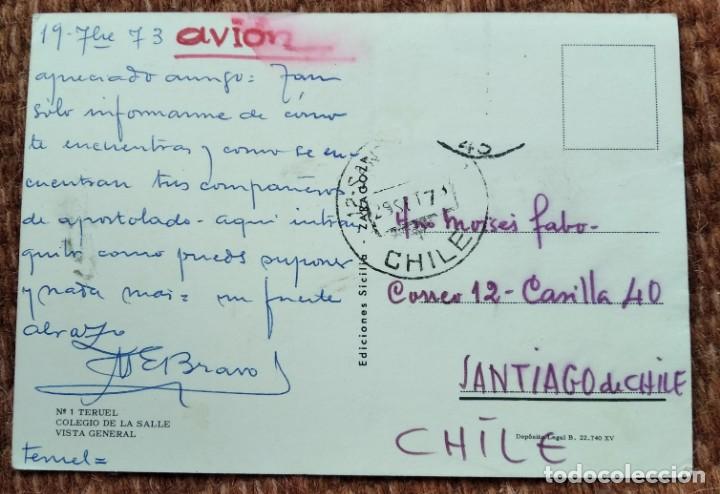 19-7bre 73 avion
apreciado amigo = Tan
sólo informarme de cómo
te encuentras y como se en-
cuentran tus compañeros
de apostolado - aqui intran
quilo como puedes suponer
y nada mas = un fuerte
abrazo
M E Bravo
Nº 1 TERUEL
COLEGIO DE LA SALLE
VISTA GENERAL
Teruel =
Ediciones Sicilia - ZARAGOZA
CHILE
Hno Moises Fabo-
Correo 12 - Casilla 40
SANTIAGO de CHILE
CHILE
Depósito Legal B. 22.740 XV
todocoleccion